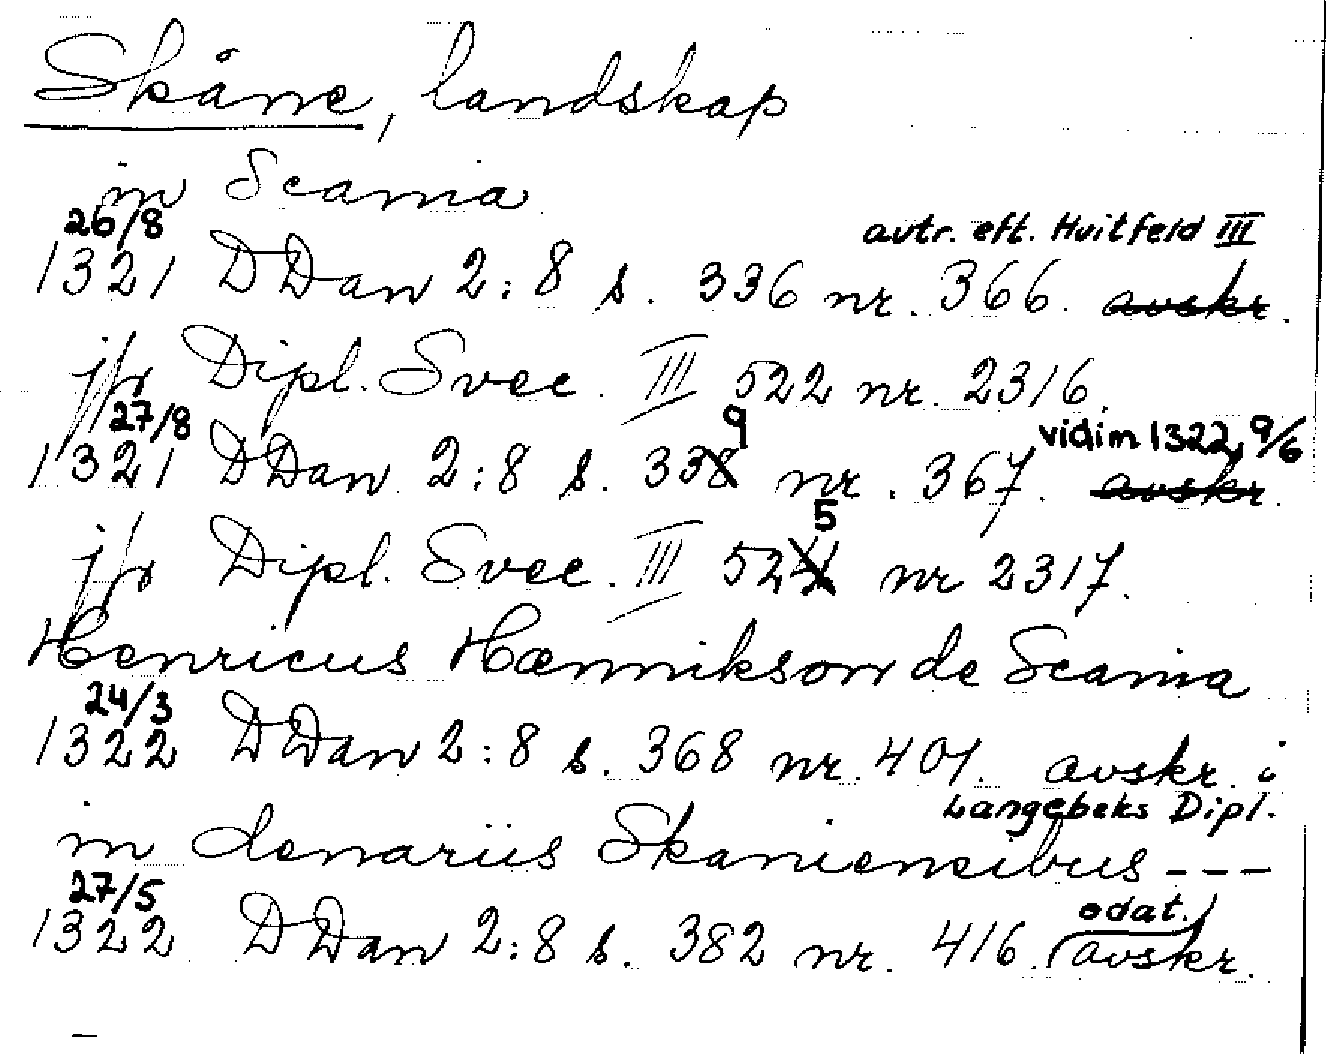 Skåne, landskap
in Scania
26/8 avtr. eft. Huitfeld III
1321 DDan 2:8 s. 336 nr. 366. avskr.
jfr Dipl. Svec. III 522 nr. 2316.
27/8 9 vidim 1322, 9/6
1321 DDan 2:8 s. 338 nr. 367. avskr.
5
jfr Dipl. Svec. III 524 nr 2317.
Henricus Hænnikson de Scania
24/3
1322 DDan 2:8 s. 368 nr. 401. avskr. i
Langebeks Dipl.
in denariis Skaniensibus ---
27/5 odat.
1322 DDan 2:8 s. 382 nr. 416. avskr.